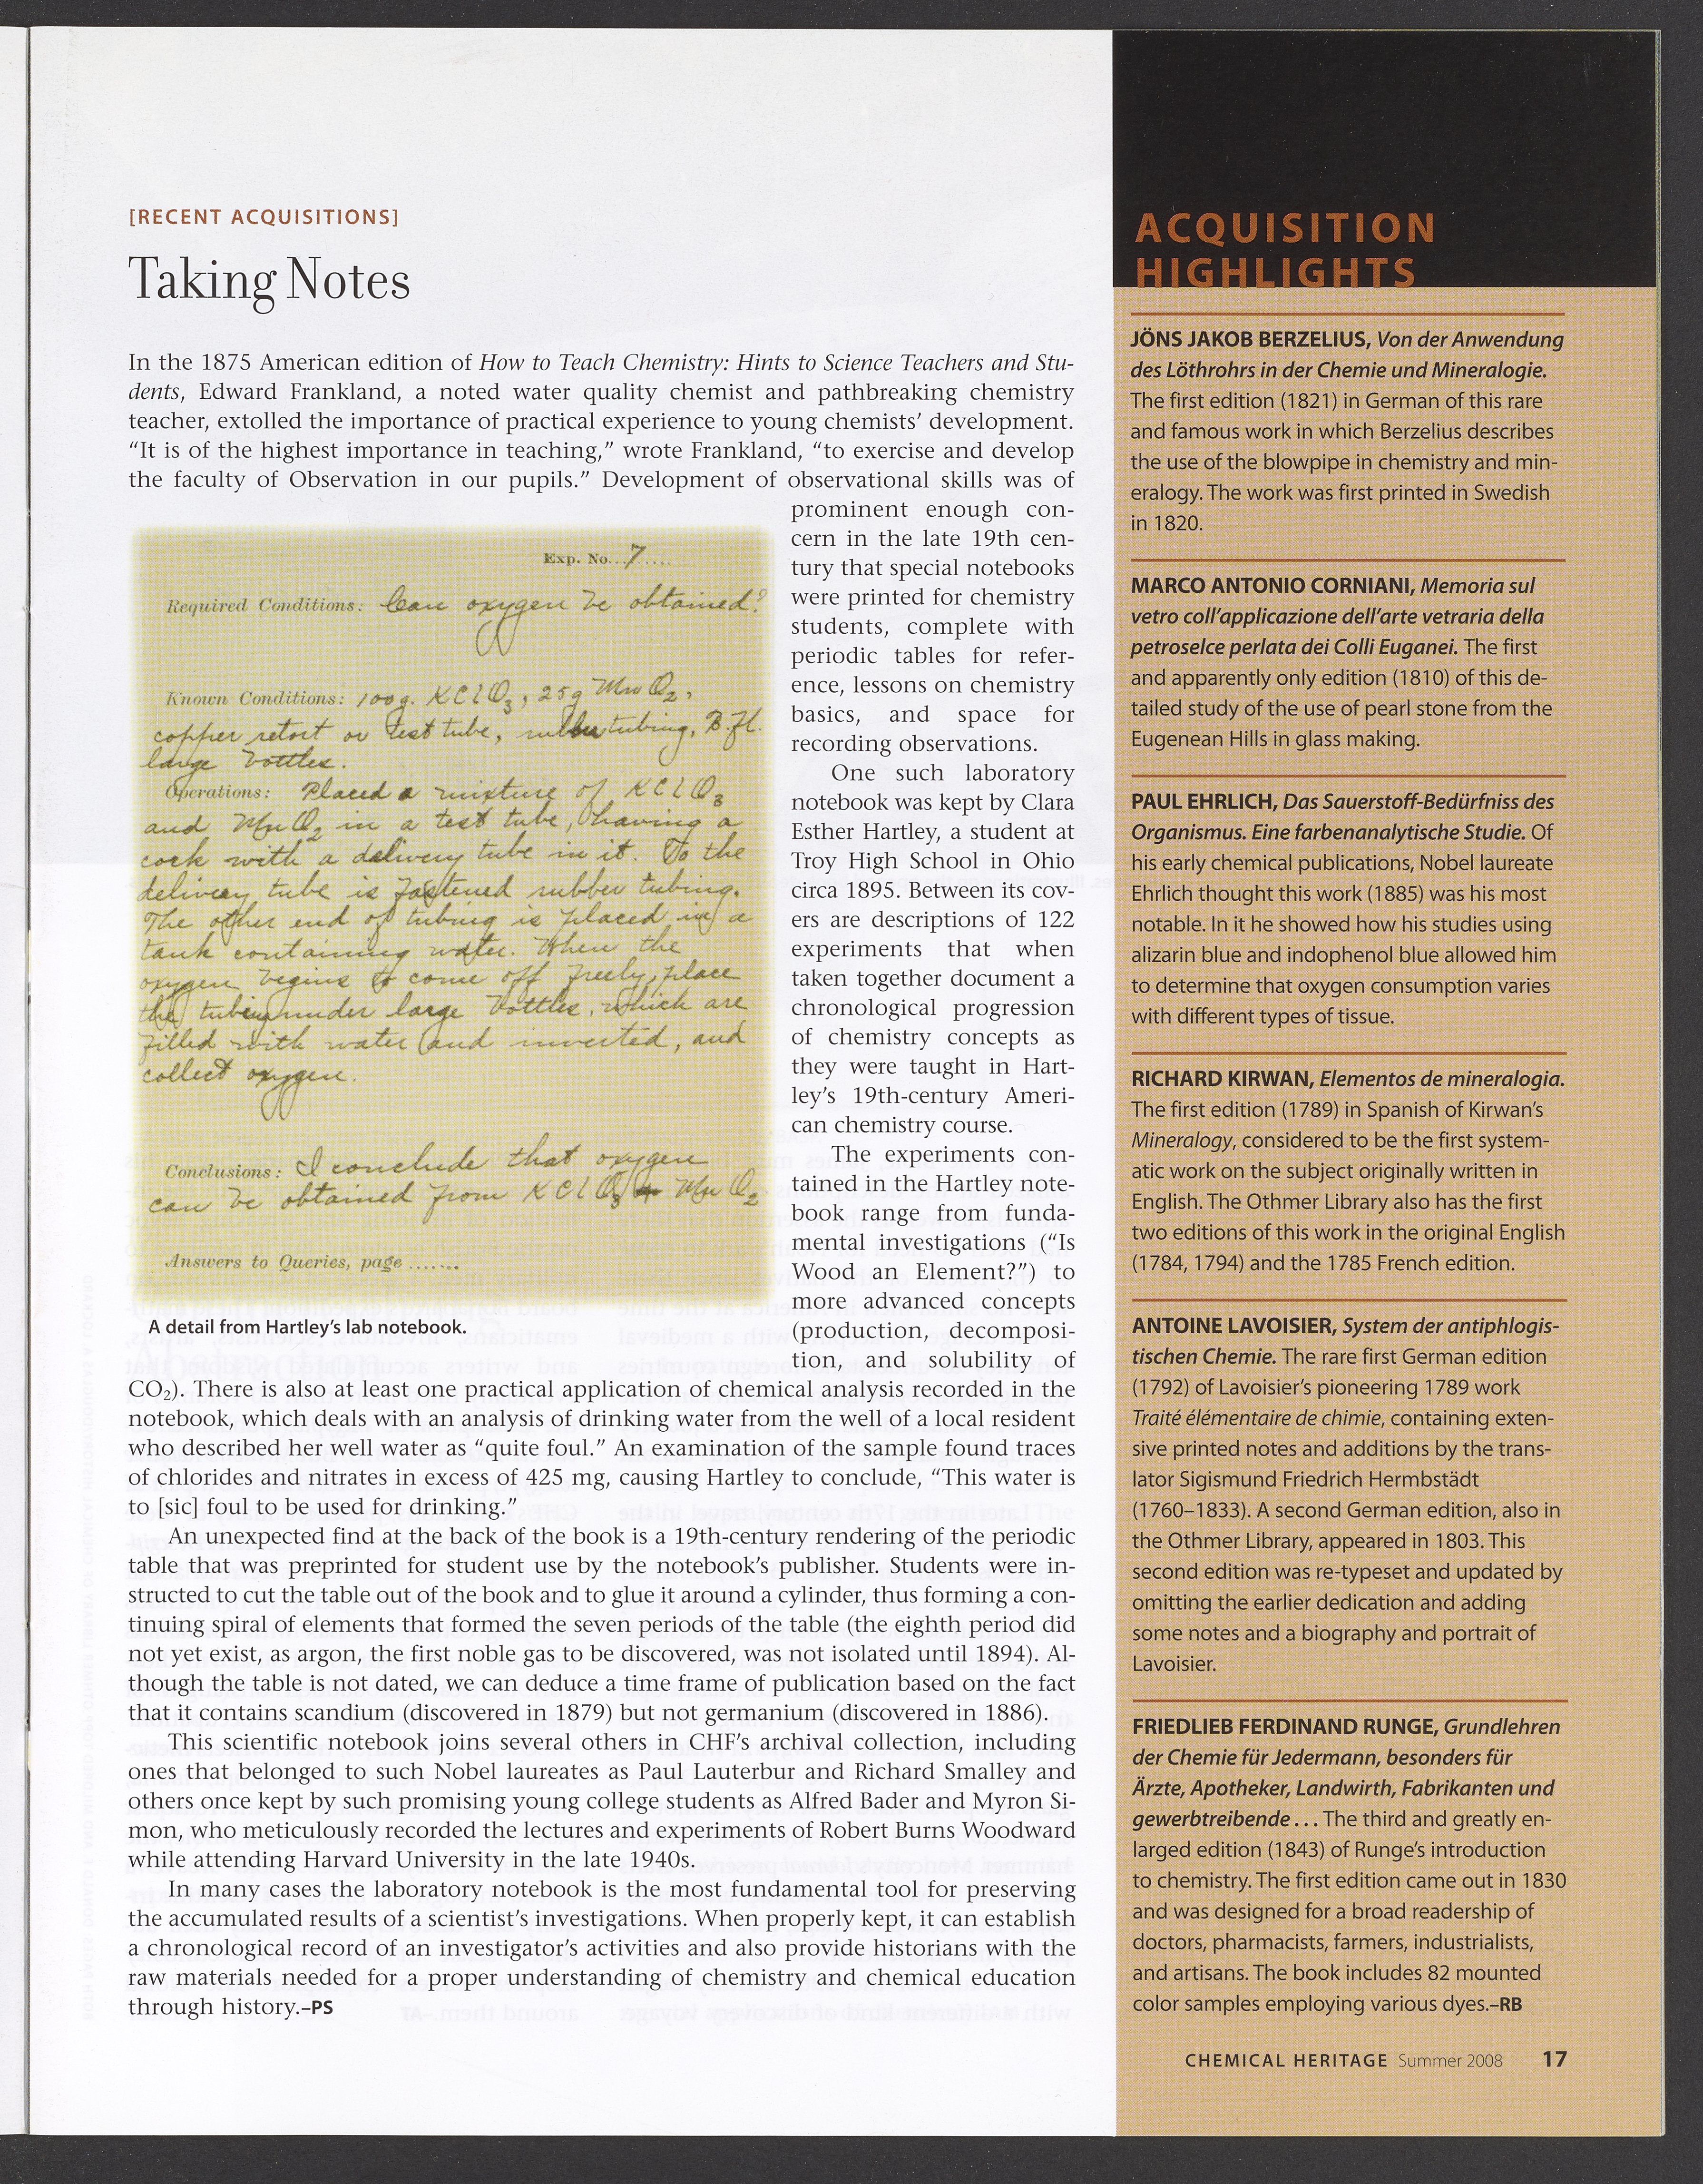 [RECENT ACQUISITIONS]
Taking Notes
In the 1875 American edition of How to Teach Chemistry: Hints to Science Teachers and Stu-
dents, Edward Frankland, a noted water quality chemist and pathbreaking chemistry
teacher, extolled the importance of practical experience to young chemists' development.
“It is of the highest importance in teaching,” wrote Frankland, “to exercise and develop
the faculty of Observation in our pupils.” Development of observational skills was of
prominent enough con-
cern in the late 19th cen-
tury that special notebooks
were printed for chemistry
students, complete with
periodic tables for refer-
ence, lessons on chemistry
basics, and space for
recording observations.
One such laboratory
notebook was kept by Clara
Esther Hartley, a student at
Troy High School in Ohio
circa 1895. Between its cov-
ers are descriptions of 122
experiments that when
taken together document a
chronological progression
of chemistry concepts as
they were taught in Hart-
ley's 19th-century Ameri-
can chemistry course.
The experiments con-
tained in the Hartley note-
book range from funda-
mental investigations (“Is
Wood an Element?”) to
more advanced concepts
(production, decomposi-
tion, and solubility of
CO₂). There is also at least one practical application of chemical analysis recorded in the
notebook, which deals with an analysis of drinking water from the well of a local resident
who described her well water as “quite foul.” An examination of the sample found traces
of chlorides and nitrates in excess of 425 mg, causing Hartley to conclude, “This water is
to [sic] foul to be used for drinking.”
An unexpected find at the back of the book is a 19th-century rendering of the periodic
table that was preprinted for student use by the notebook's publisher. Students were in-
structed to cut the table out of the book and to glue it around a cylinder, thus forming a con-
tinuing spiral of elements that formed the seven periods of the table (the eighth period did
not yet exist, as argon, the first noble gas to be discovered, was not isolated until 1894). Al-
though the table is not dated, we can deduce a time frame of publication based on the fact
that it contains scandium (discovered in 1879) but not germanium (discovered in 1886).
This scientific notebook joins several others in CHF's archival collection, including
ones that belonged to such Nobel laureates as Paul Lauterbur and Richard Smalley and
others once kept by such promising young college students as Alfred Bader and Myron Si-
mon, who meticulously recorded the lectures and experiments of Robert Burns Woodward
while attending Harvard University in the late 1940s.
In many cases the laboratory notebook is the most fundamental tool for preserving
the accumulated results of a scientist's investigations. When properly kept, it can establish
a chronological record of an investigator's activities and also provide historians with the
raw materials needed for a proper understanding of chemistry and chemical education
through history.–PS
Exp. No...7.....
Required Conditions: Can oxygen be obtained?
Known Conditions: 100g. KClO₃, 25g MnO₂,
copper retort or test tube, rubber tubing, B. Fl.
large bottles.
Operations: Placed a mixture of KClO₃
and MnO₂ in a test tube, having a
cork with a delivery tube in it. To the
delivery tube is fastened rubber tubing.
The other end of tubing is placed in a
tank containing water. When the
oxygen begins to come off freely, place
the tubing under large bottles, which are
filled with water and inverted, and
collect oxygen.
Conclusions: I conclude that oxygen
can be obtained from KClO₃ + MnO₂
Answers to Queries, page .......
A detail from Hartley's lab notebook.
ACQUISITION
HIGHLIGHTS
JÖNS JAKOB BERZELIUS, Von der Anwendung
des Löthrohrs in der Chemie und Mineralogie.
The first edition (1821) in German of this rare
and famous work in which Berzelius describes
the use of the blowpipe in chemistry and min-
eralogy. The work was first printed in Swedish
in 1820.
MARCO ANTONIO CORNIANI, Memoria sul
vetro coll'applicazione dell'arte vetraria della
petroselce perlata dei Colli Euganei. The first
and apparently only edition (1810) of this de-
tailed study of the use of pearl stone from the
Eugenean Hills in glass making.
PAUL EHRLICH, Das Sauerstoff-Bedürfniss des
Organismus. Eine farbenanalytische Studie. Of
his early chemical publications, Nobel laureate
Ehrlich thought this work (1885) was his most
notable. In it he showed how his studies using
alizarin blue and indophenol blue allowed him
to determine that oxygen consumption varies
with different types of tissue.
RICHARD KIRWAN, Elementos de mineralogia.
The first edition (1789) in Spanish of Kirwan's
Mineralogy, considered to be the first system-
atic work on the subject originally written in
English. The Othmer Library also has the first
two editions of this work in the original English
(1784, 1794) and the 1785 French edition.
ANTOINE LAVOISIER, System der antiphlogis-
tischen Chemie. The rare first German edition
(1792) of Lavoisier's pioneering 1789 work
Traité élémentaire de chimie, containing exten-
sive printed notes and additions by the trans-
lator Sigismund Friedrich Hermbstädt
(1760–1833). A second German edition, also in
the Othmer Library, appeared in 1803. This
second edition was re-typeset and updated by
omitting the earlier dedication and adding
some notes and a biography and portrait of
Lavoisier.
FRIEDLIEB FERDINAND RUNGE, Grundlehren
der Chemie für Jedermann, besonders für
Ärzte, Apotheker, Landwirth, Fabrikanten und
gewerbtreibende . . . The third and greatly en-
larged edition (1843) of Runge's introduction
to chemistry. The first edition came out in 1830
and was designed for a broad readership of
doctors, pharmacists, farmers, industrialists,
and artisans. The book includes 82 mounted
color samples employing various dyes.–RB
CHEMICAL HERITAGE Summer 2008 17